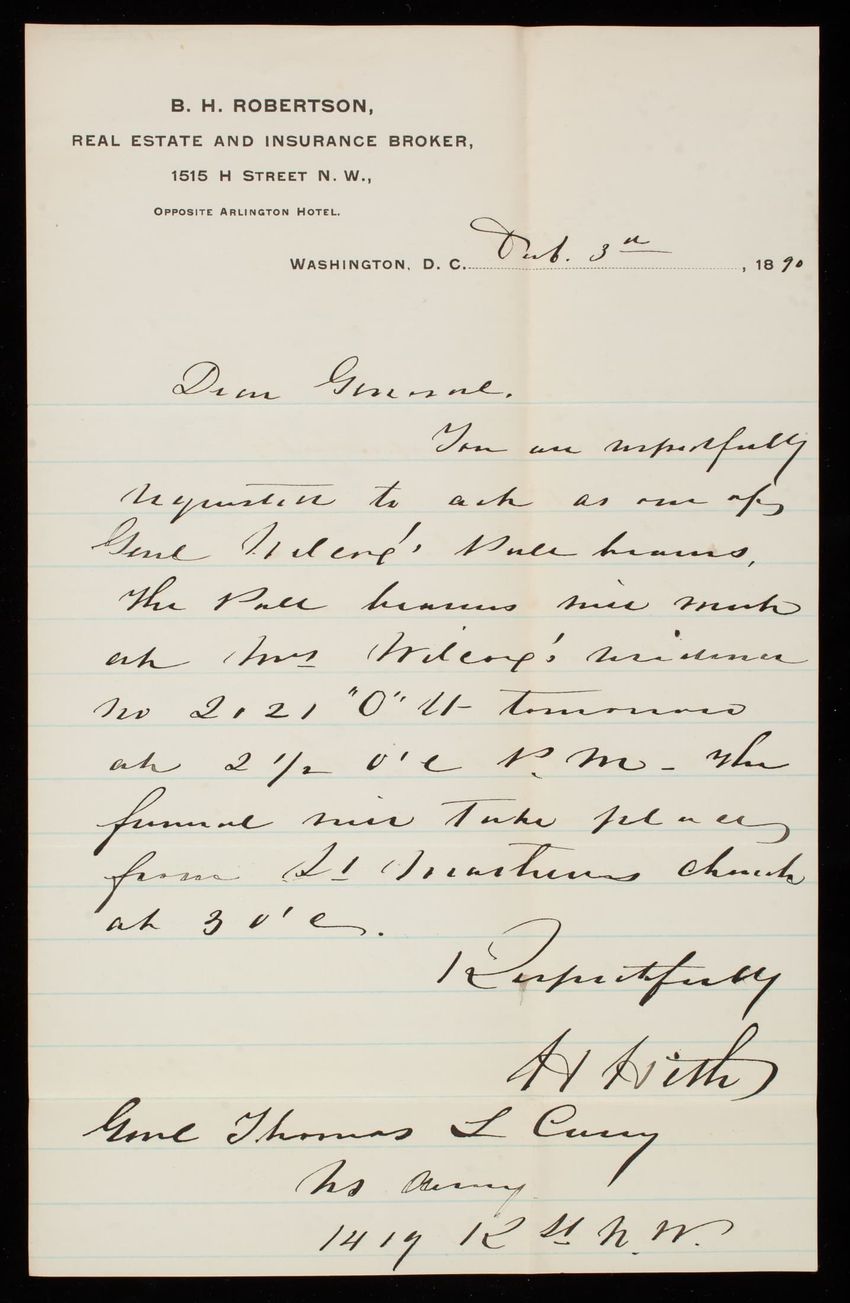 B. H. ROBERTSON,
REAL ESTATE AND INSURANCE BROKER,
1515 H STREET N. W.,
OPPOSITE ARLINGTON HOTEL.
WASHINGTON, D. C. Decb. 3rd, 1890
Dear General.
You are respectfully
requested to act as one of
Genl Wilcox's Pall bearers,
The Pall bearers will meet
at Mrs Wilcox's residence
No 2121 "O" St tomorrow
at 2 1/2 O'C P. M - The
funeral will take place
from St Matthews church
at 3 O'C.
Respectfully
H Heth
Genl Thomas L Casey
US Army
1419 K St N. W.